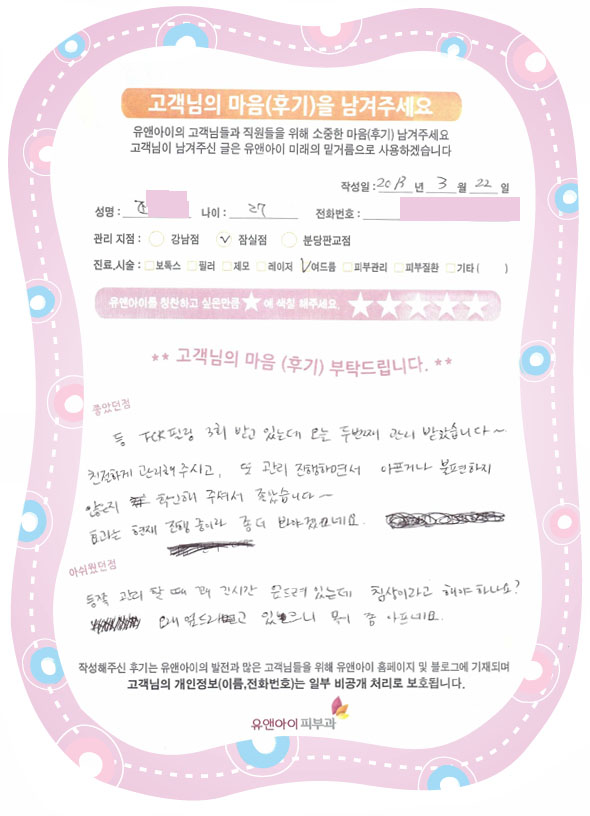 고객님의 마음(후기)을 남겨주세요
유앤아이의 고객님들과 직원들을 위해 소중한 마음(후기) 남겨주세요
고객님이 남겨주신 글은 유앤아이 미래의 밑거름으로 사용하겠습니다
작성일 : 2013 년 3 월 22 일
성명 : 나이 : 27 전화번호 :
관리 지점 : 강남점 잠실점 분당판교점
진료,시술 : 보톡스 필러 제모 레이저 여드름 피부관리 피부질환 기타 ( )
유앤아이를 칭찬하고 싶은만큼 ★ 에 색칠 해주세요 ★★★★★
** 고객님의 마음 (후기) 부탁드립니다. **
좋았던점
등 TCK 필링 3회 받고 있는데 오늘 두번째 관리 받았습니다~
친절하게 관리해 주시고, 또 관리 진행하면서 아프거나 불편하지
않는지 확인해 주셔서 좋았습니다~
효과는 현재 진행 중이라 좀더 봐야겠네요.
아쉬웠던점
등쪽 관리 할 때 꽤 긴시간 엎드려있는데 침상이라고 해야 하나요?
오래 엎드리고 있으니 목이 좀 아프네요.
작성해주신 후기는 유앤아이의 발전과 많은 고객님들을 위해 유앤아이 홈페이지 및 블로그에 기재되며
고객님의 개인정보(이름,전화번호)는 일부 비공개 처리로 보호됩니다.
유앤아이피부과